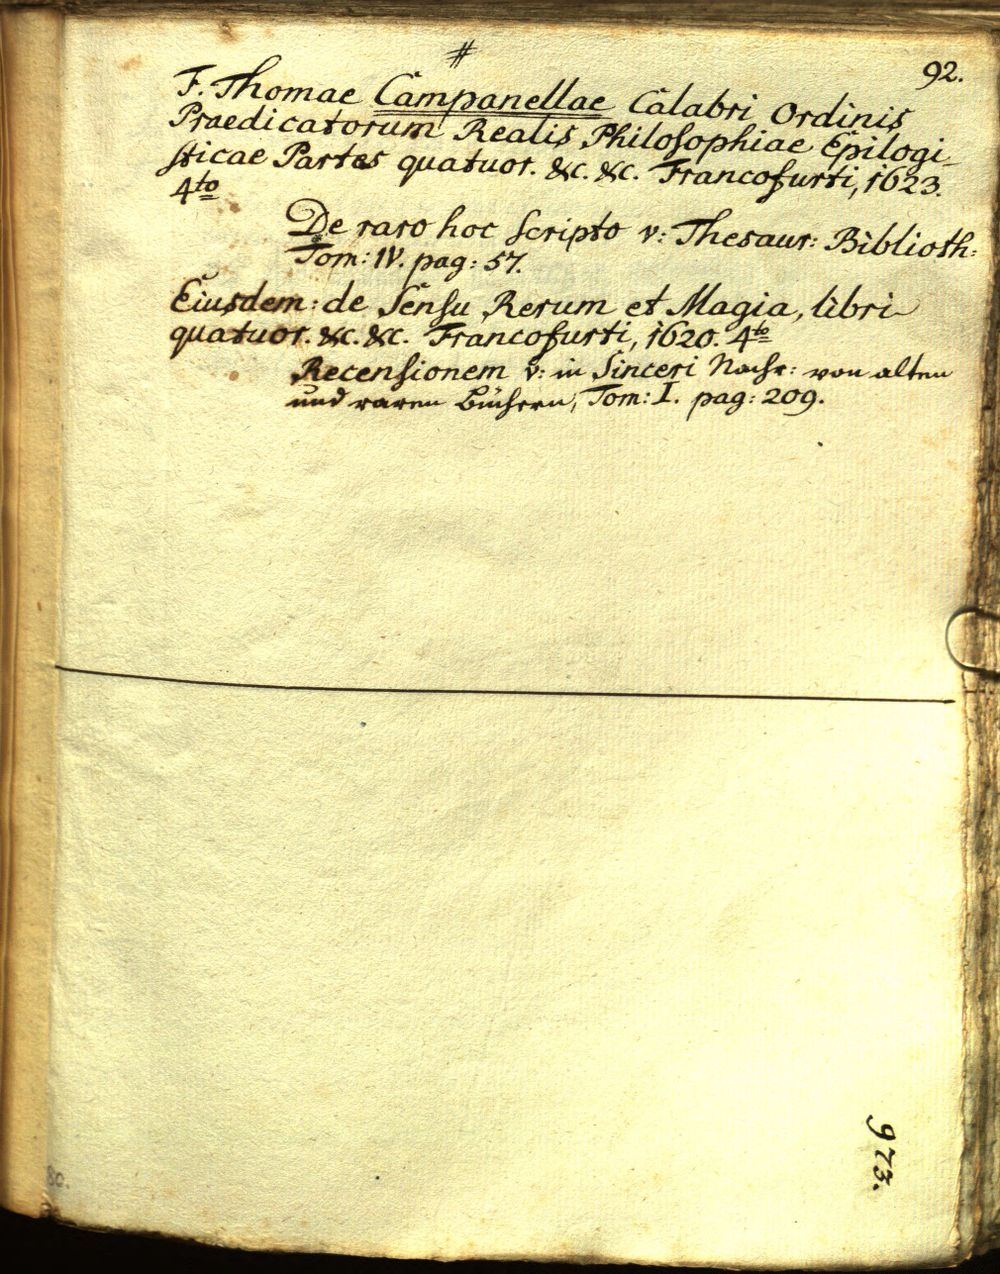 #
92.
F. Thomae Campanellae Calabri Ordinis
Praedicatorum Realis Philosophiae Epilogi-
sticae Partes quatuor. &c. &c. Francofurti, 1623.
4to
De raro hoc Scripto v: Thesaur: Biblioth:
Tom: IV. pag: 57.
Eiusdem: de Sensu Rerum et Magia, libri
quatuor. &c. &c. Francofurti, 1620. 4to
Recensionem v: in Sinceri Nachr: von alten
und raren Büchern, Tom: I. pag: 209.
973.